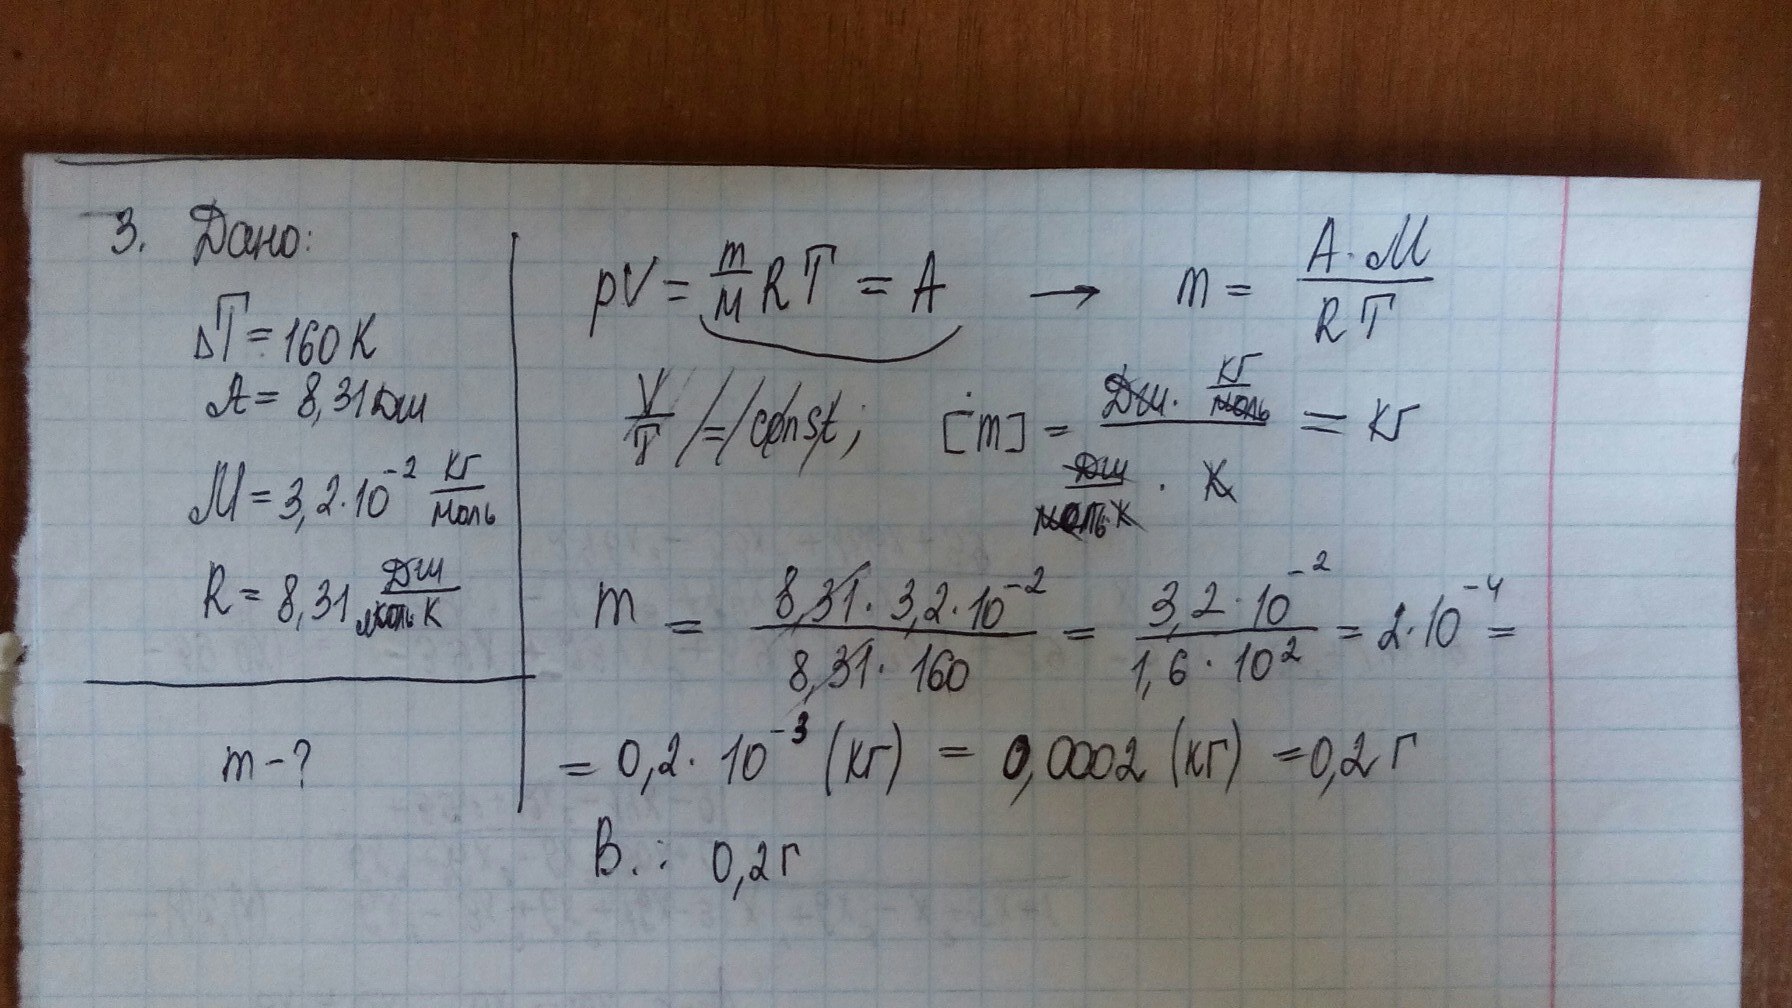 3. Дано:
ΔT = 160 К
A = 8,31 Дж
M = 3,2·10⁻² кг/моль
R = 8,31 Дж/моль·К
m - ?
pV = m/M RT = A → m = A·M/RT
V/T = const; [m] = Дж · кг/моль / Дж/моль·К · К = кг
m = 8,31 · 3,2·10⁻² / 8,31 · 160 = 3,2·10⁻² / 1,6·10² = 2·10⁻⁴ =
= 0,2·10⁻³ (кг) = 0,0002 (кг) = 0,2 г
В.: 0,2 г